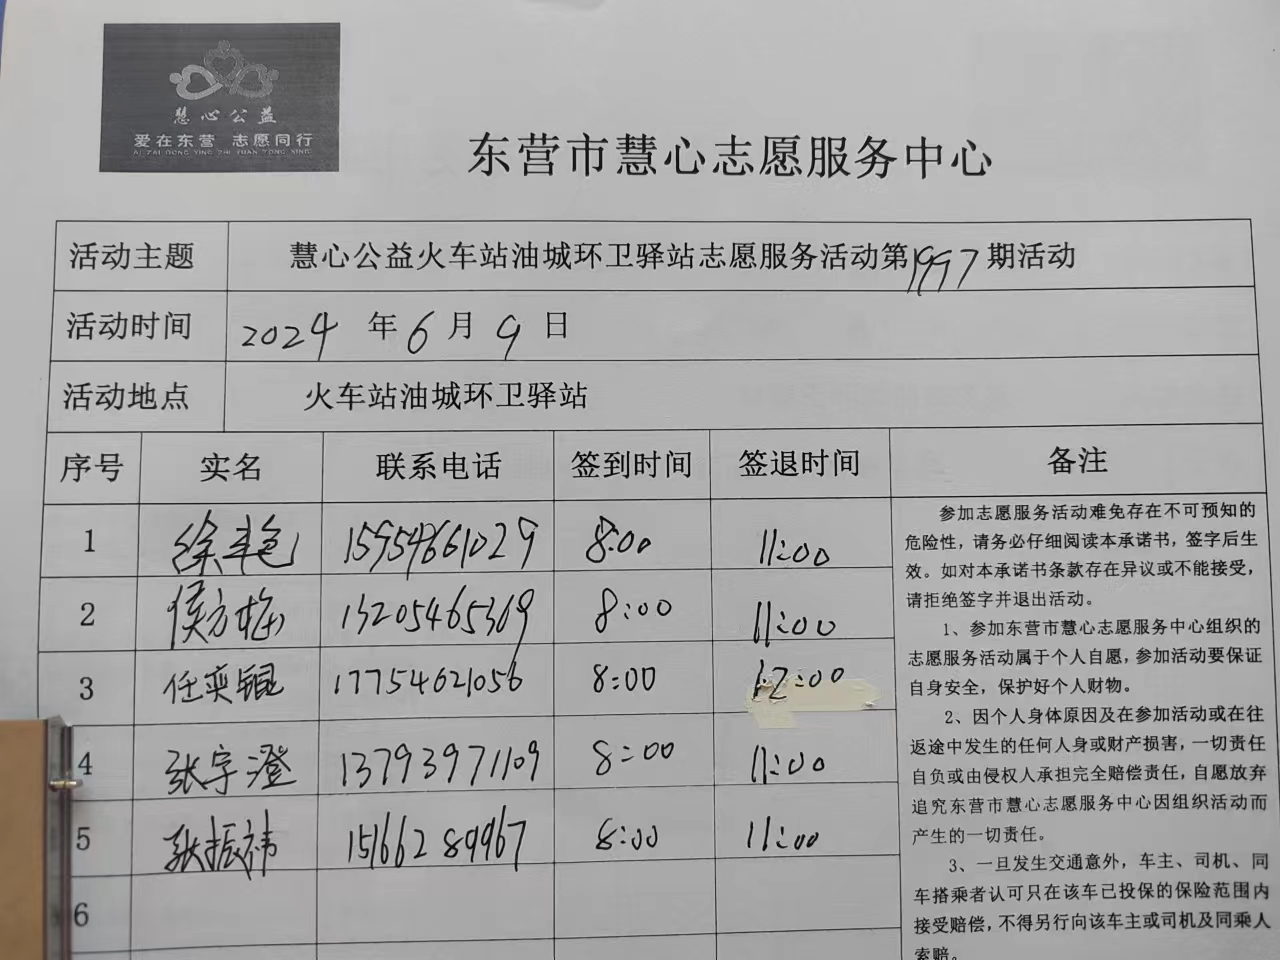 慧心公益
爱在东营 志愿同行
AI ZAI DONG YING ZHI YUAN TONG XING
东营市慧心志愿服务中心
活动主题 慧心公益火车站油城环卫驿站志愿服务活动第1997期活动
活动时间 2024 年 6 月 9 日
活动地点 火车站油城环卫驿站
序号 实名 联系电话 签到时间 签退时间 备注
1 徐 15954661029 8:00 11:00
2 侯方梅 13205465369 8:00 11:00
3 任奕锟 17754621056 8:00 12:00
4 张宇澄 13793971109 8:00 11:00
5 张振祎 15166289967 8:00 11:00
6
参加志愿服务活动难免存在不可预知的
危险性，请务必仔细阅读本承诺书，签字后生
效。如对本承诺书条款存在异议或不能接受，
请拒绝签字并退出活动。
1、参加东营市慧心志愿服务中心组织的
志愿服务活动属于个人自愿，参加活动要保证
自身安全，保护好个人财物。
2、因个人身体原因及在参加活动或在往
返途中发生的任何人身或财产损害，一切责任
自负或由侵权人承担完全赔偿责任，自愿放弃
追究东营市慧心志愿服务中心因组织活动而
产生的一切责任。
3、一旦发生交通意外，车主、司机、同
车搭乘者认可只在该车已投保的保险范围内
接受赔偿，不得另行向该车主或司机及同乘人
索赔。